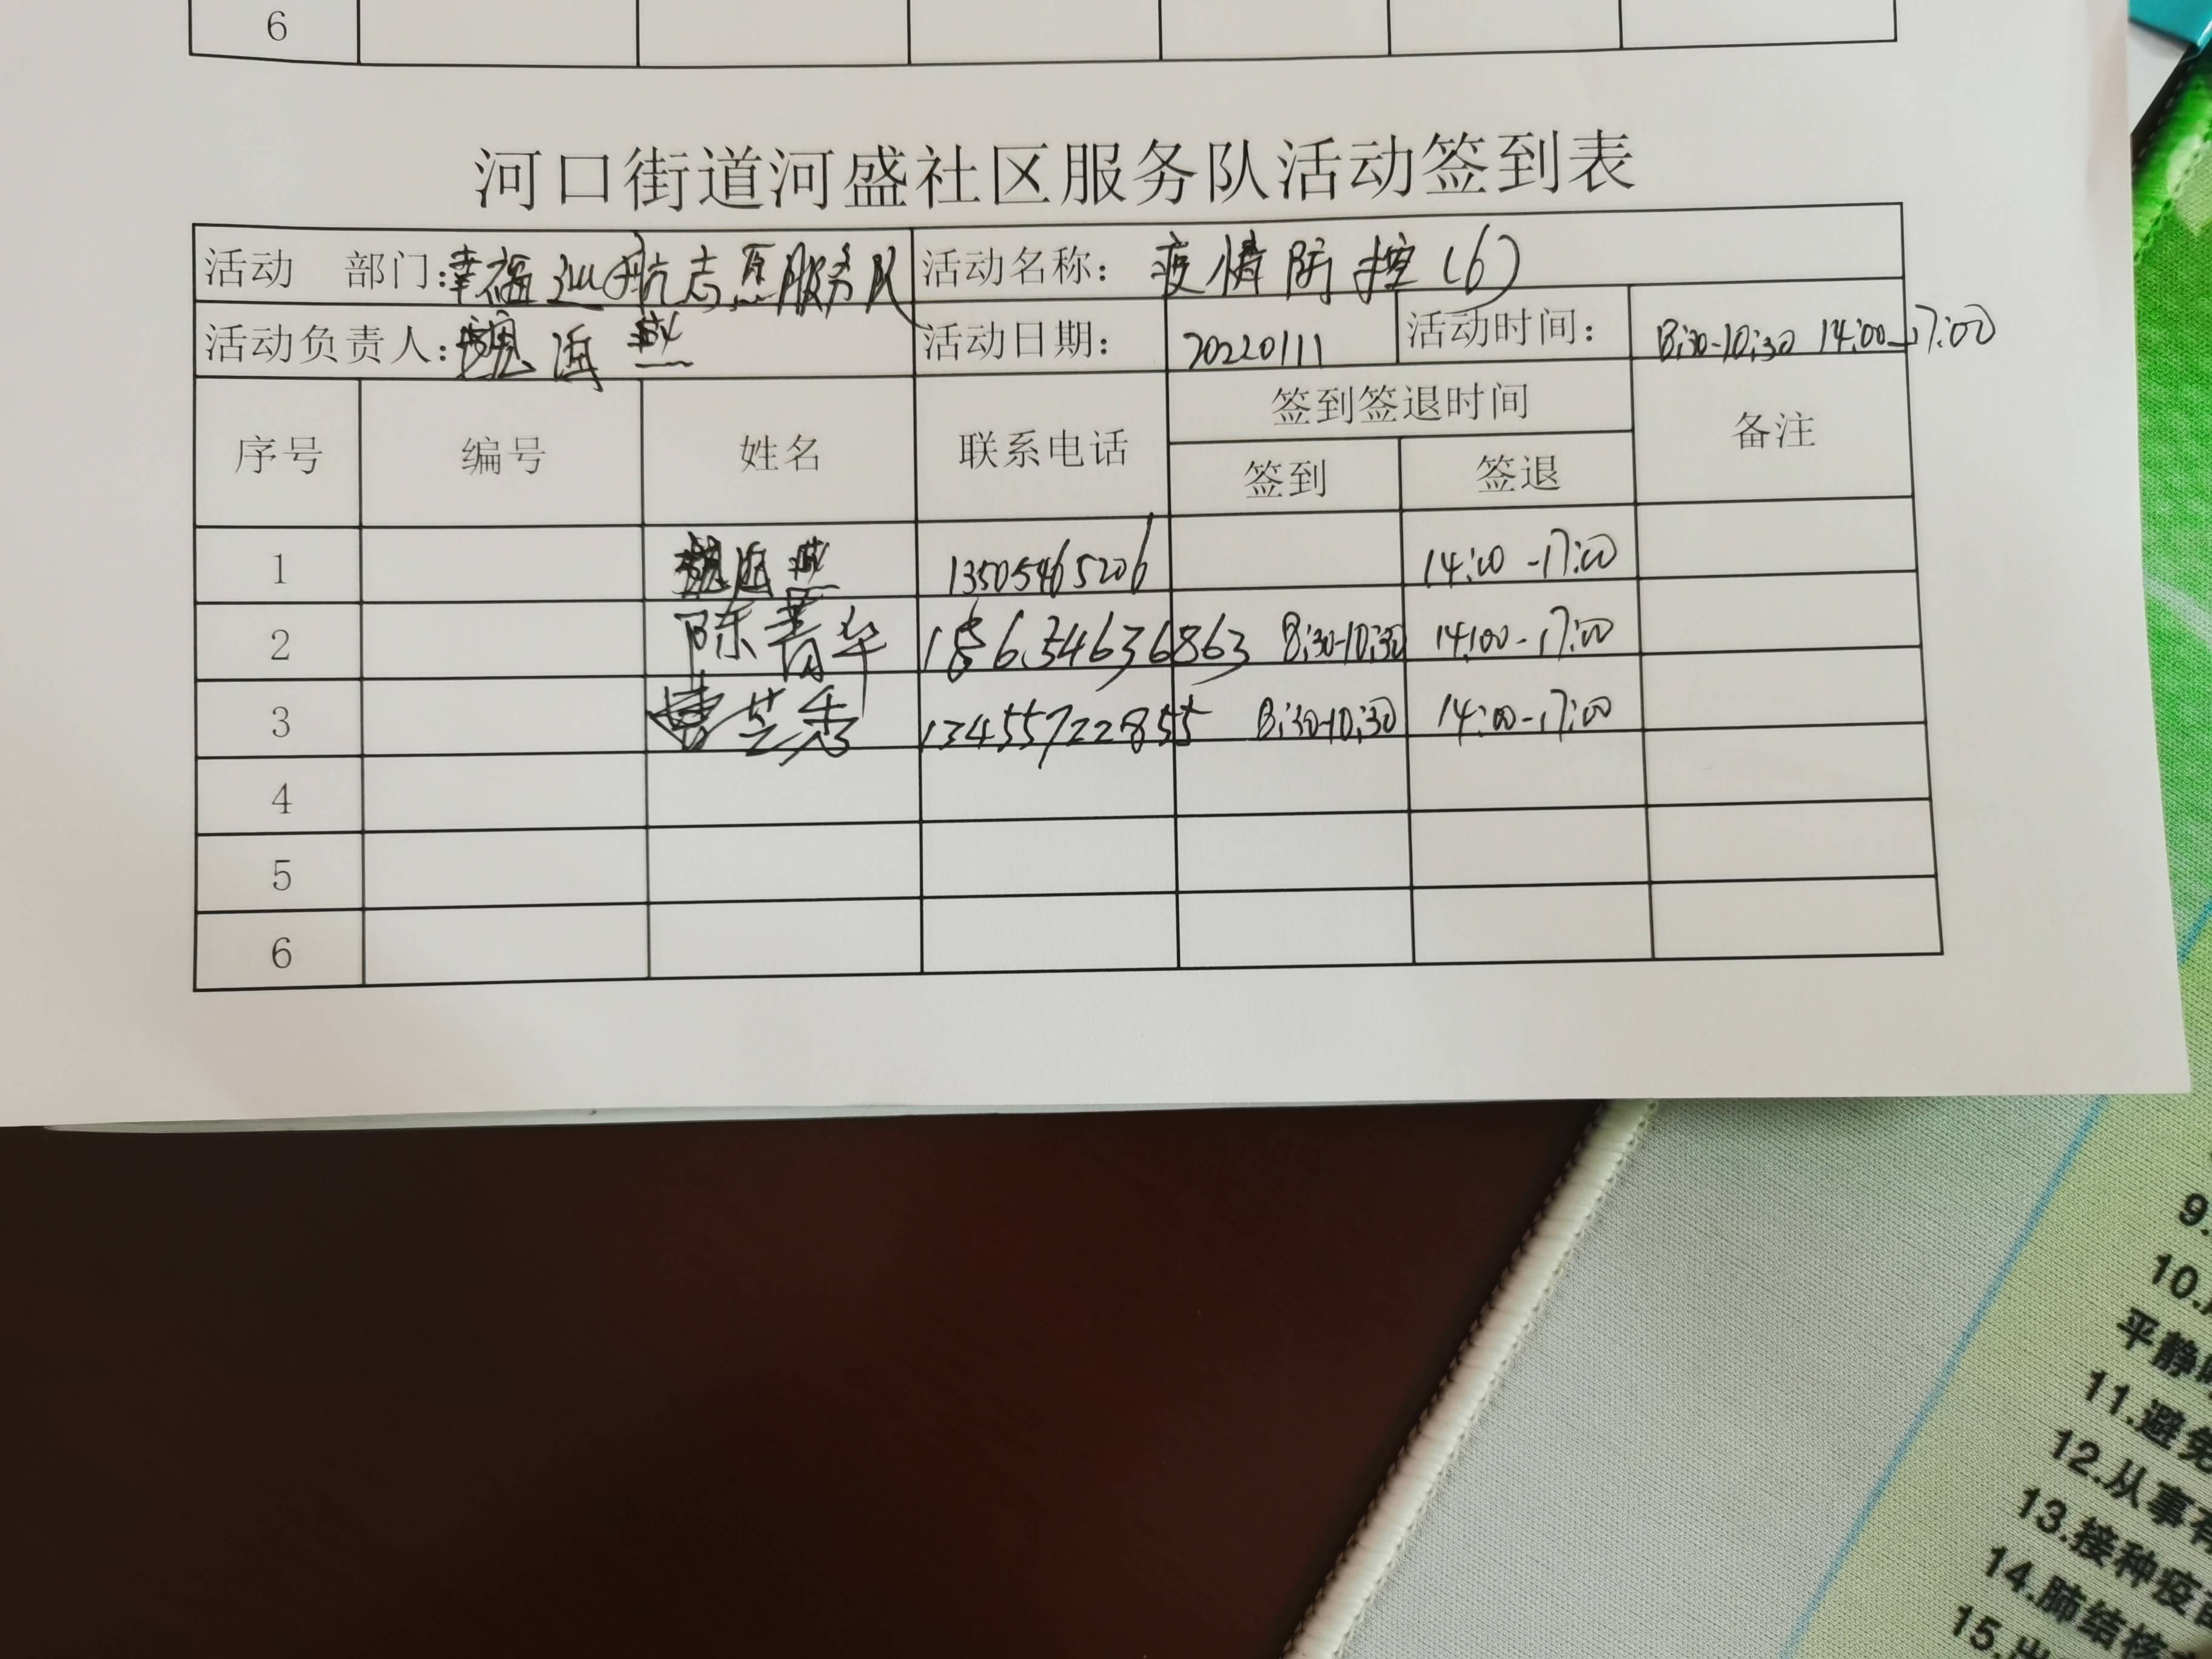 6
河口街道河盛社区服务队活动签到表
活动 部门：幸福巡航志愿服务队 活动名称：疫情防控（6）
活动负责人：魏海燕 活动日期： 20220111 活动时间： 8:30-10:30 14:00-17:00
序号 编号 姓名 联系电话 签到签退时间 备注
签到 签退
1 魏海燕 13505465206 14:00-17:00
2 陈菁华 15634636863 8:30-10:30 14:00-17:00
3 曹芝秀 13455722855 8:30-10:30 14:00-17:00
4
5
6
9.
10.
平静
11.避免
12.从事有
13.接种疫苗
14.肺结核
15.出